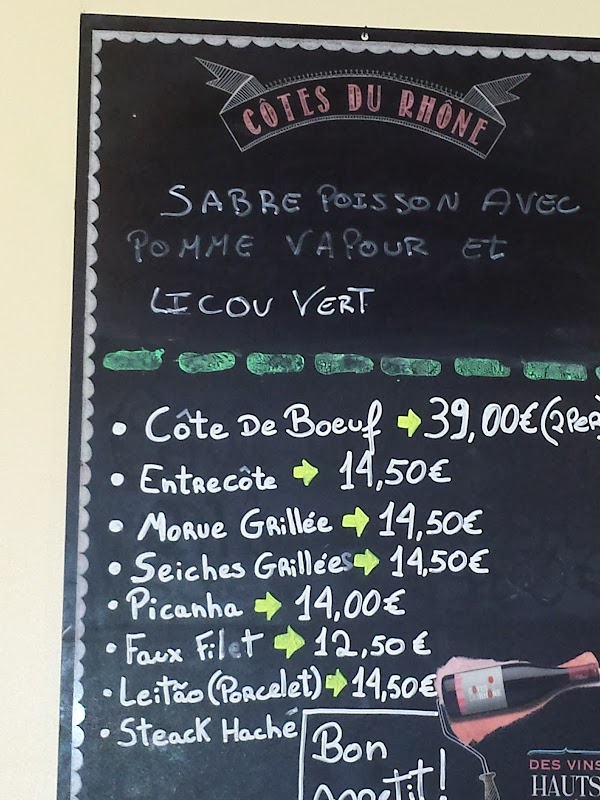 CÔTES DU RHÔNE
SABRE POISSON AVEC
POMME VAPOUR ET
LICOU VERT
• Côte De Boeuf ➔ 39,00€ (2 Per
• Entrecôte ➔ 14,50€
• Morue Grillée ➔ 14,50€
• Seiches Grillées ➔ 14,50€
• Picanha ➔ 14,00€
• Faux Filet ➔ 12,50€
• Leitão (Porcelet) ➔ 14,50€
• Steack Haché
Bon
appetit!
DES VINS
HAUTS